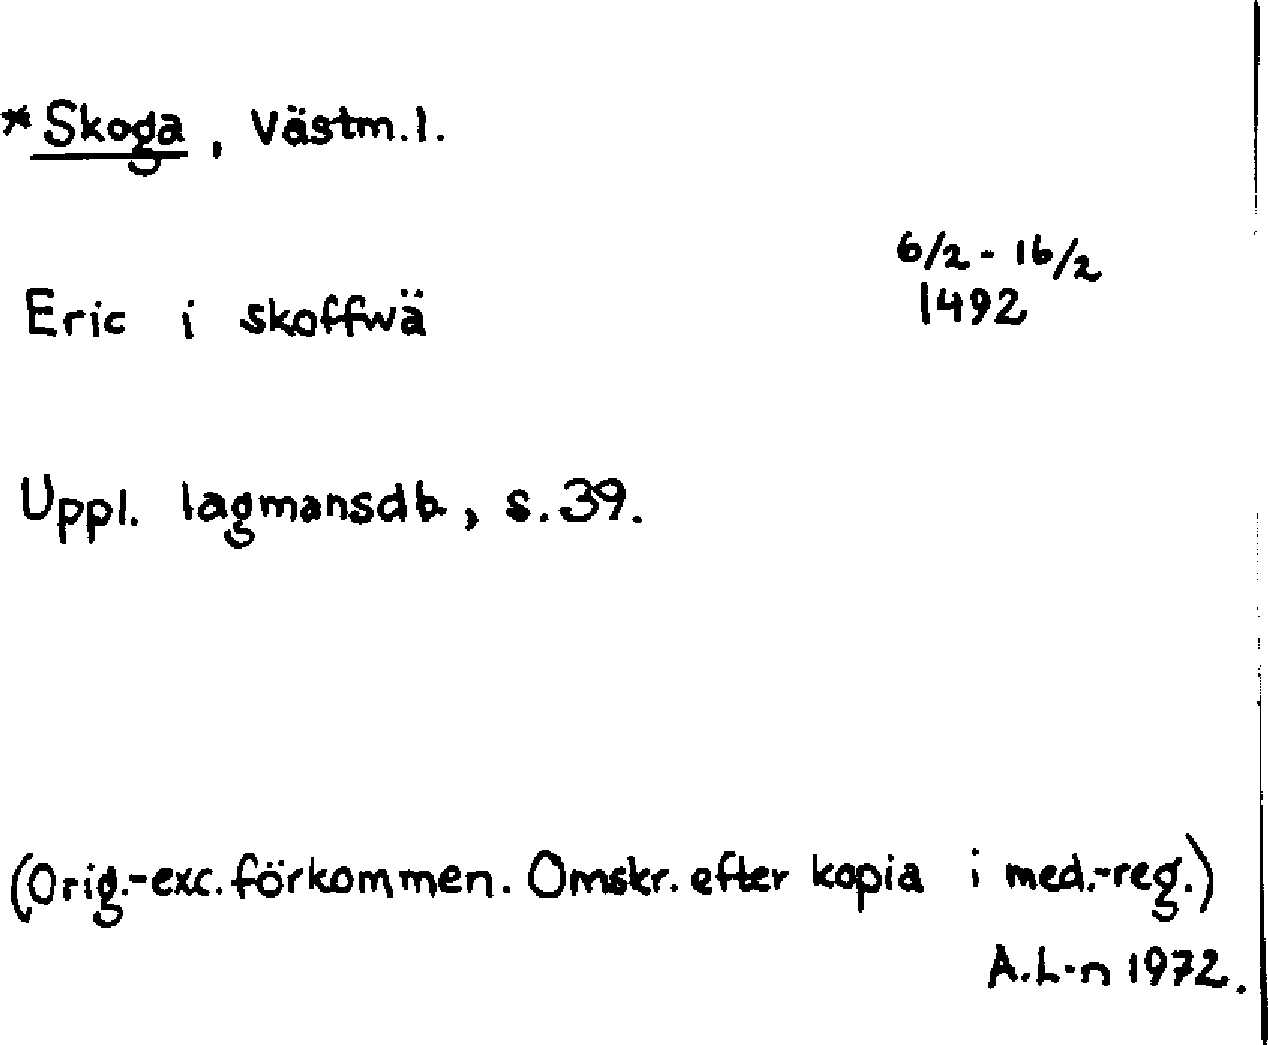 *Skoga, Västm.l.
6/2 - 16/2
Eric i skoffwä 1492
Uppl. lagmansdb, s.39.
(Orig.-exc. förkommen. Omskr. efter kopia i med.-reg.)
A.L-n 1972.